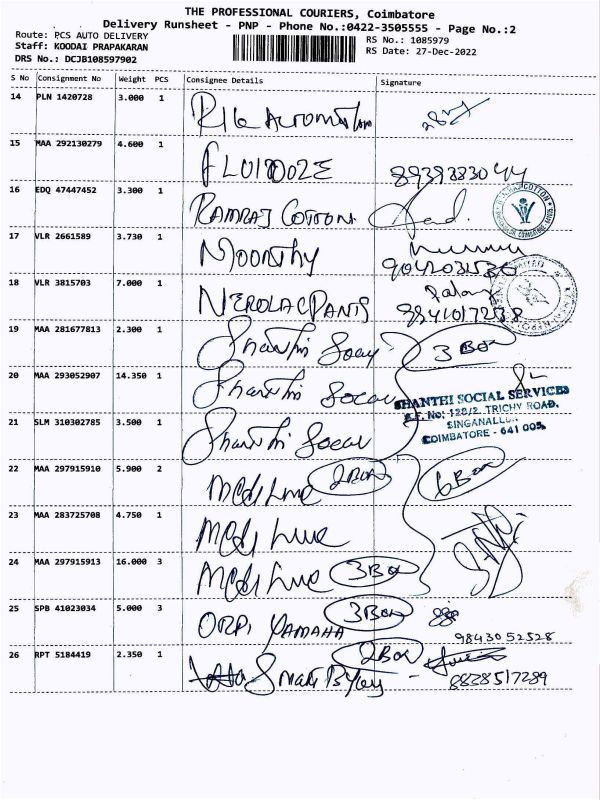 THE PROFESSIONAL COURIERS, Coimbatore
Delivery Runsheet - PNP - Phone No.:0422-3505555 - Page No.:2
Route: PCS AUTO DELIVERY
RS No.: 1085979
Staff: KOODAI PRAPAKARAN
RS Date: 27-Dec-2022
DRS No.: DCJB108597902
S No Consignment No Weight PCS Consignee Details Signature
14 PLN 1420728 3.000 1
15 MAA 292130279 4.600 1 FLUIDOZE
16 EDQ 47447452 3.300 1 RAMRAJ COTTON
17 VLR 2661589 3.730 1 Moorthy
18 VLR 3815703 7.000 1 NEROLAC PANTS
19 MAA 281677813 2.300 1 Shanthi 3 Box
20 MAA 293052907 14.350 1 Shanthi Social
SHANTHI SOCIAL SERVICES
TRICHY ROAD,
21 SLM 310302785 3.500 1 Shanthi Social
SINGANALLUR
COIMBATORE - 641 005.
22 MAA 297915910 5.900 2 Medi Line 2 Box 6 Box
23 MAA 283725708 4.750 1 Medi Line
24 MAA 297915913 16.000 3 Medi Line 3 Box
25 SPB 41023034 5.000 3 ORPI YAMAHA 3 Box
9843052528
26 RPT 5184419 2.350 1 2 Box
8838517289